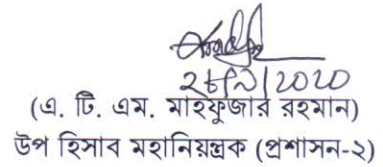 (এ. টি. এম. মাহফুজার রহমান)
উপ হিসাব মহানিয়ন্ত্রক (প্রশাসন-২)